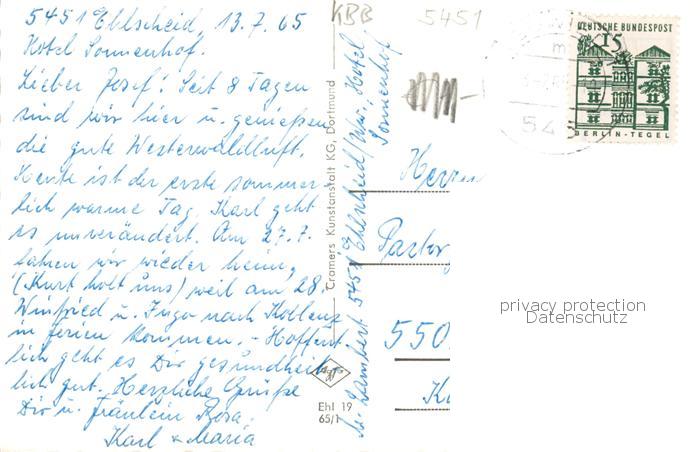 5451 Ehlscheid, 13.7.65
Hotel Sonnenhof.
Lieber Josef! Seit 8 Tagen
sind wir hier u. genießen
die gute Westerwaldluft.
Heute ist der erste sommer-
lich warme Tag. Karl geht
es unverändert. Am 27.7.
fahren wir wieder heim,
(Kurt holt uns) weil am 28.
Winfried u. Ingo nach Koblenz
in Ferien kommen. - Hoffent-
lich geht es Dir gesundheit-
lich gut. Herzliche Grüße
Dir u. Fräulein Rosa.
Karl & Maria
KBB
5451
Cramers Kunstanstalt KG, Dortmund
Ehl 19
65/1
Lambert 5451 Ehlscheid/Nw., Hotel
Sonnenhof
DEUTSCHE BUNDESPOST
15
BERLIN-TEGEL
54
Herrn
Pastor
550
privacy protection
Datenschutz